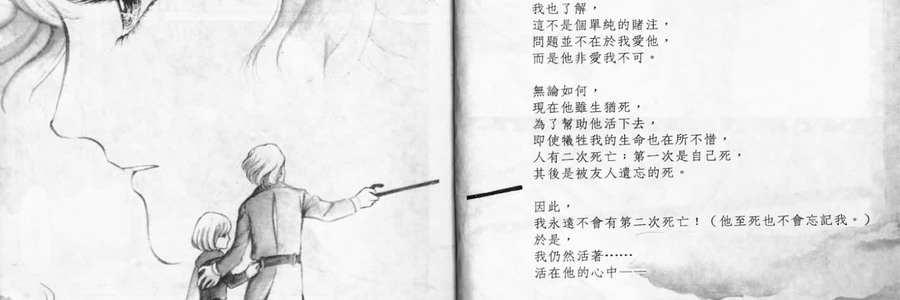 我也了解，
這不是個單純的賭注，
問題並不在於我愛他，
而是他非愛我不可。
無論如何，
現在他雖生猶死，
為了幫助他活下去，
即使犧牲我的生命也在所不惜，
人有二次死亡；第一次是自己死，
其後是被友人遺忘的死。
因此，
我永遠不會有第二次死亡！（他至死也不會忘記我。）
於是，
我仍然活著……
活在他的心中——